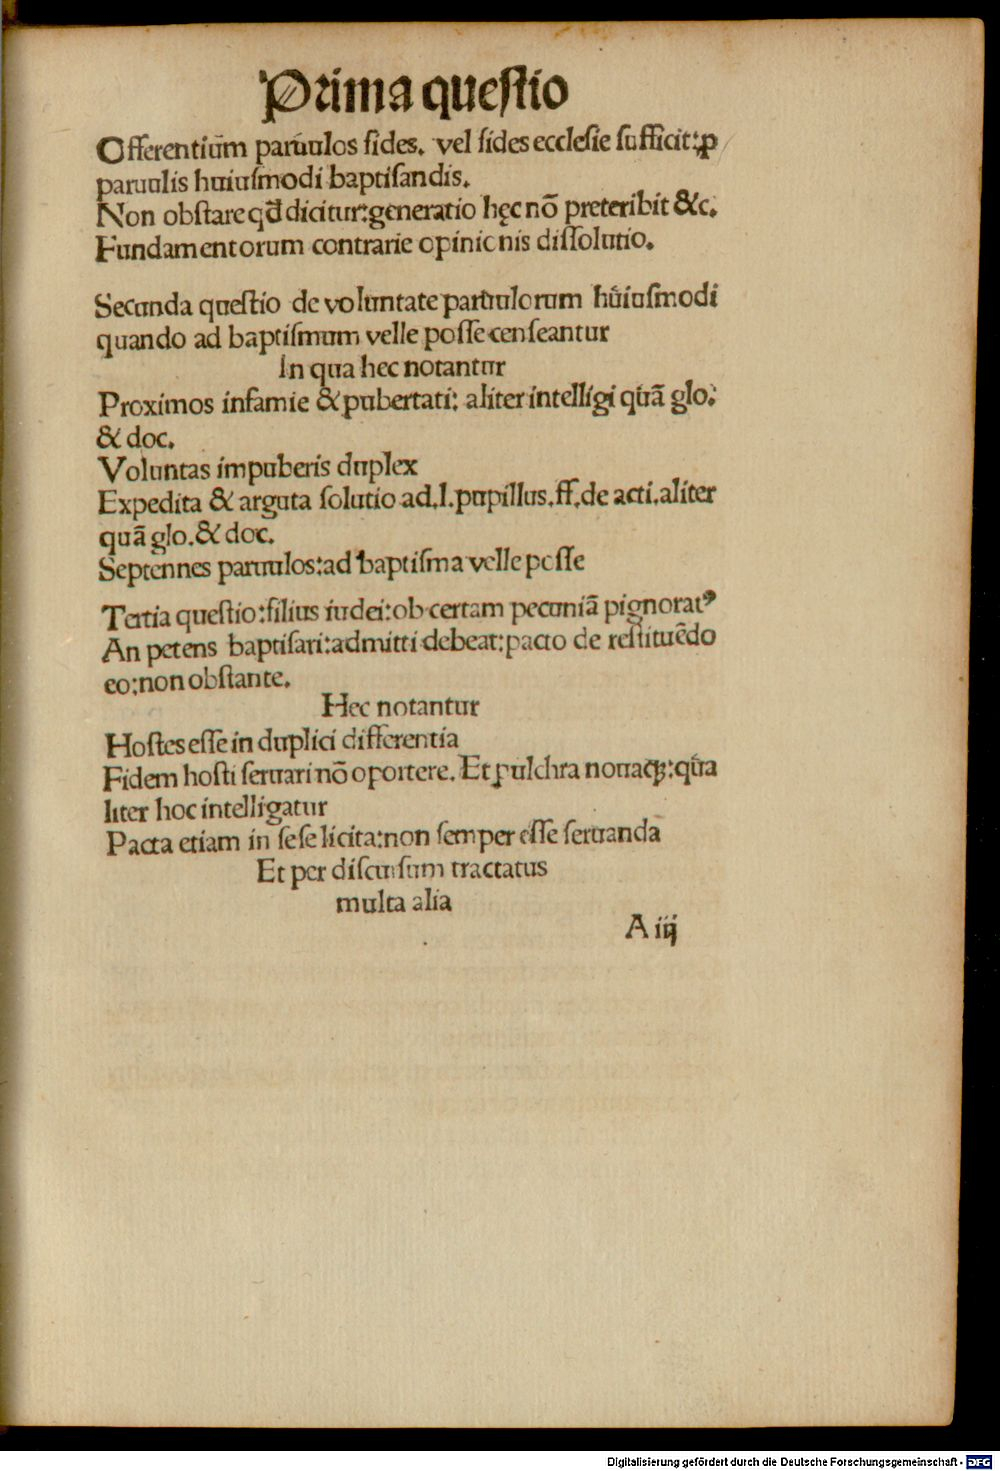 Prima questio
Offerentiũm paruulos fides. vel fides ecclesie sufficit: ꝓ
paruulis huiusmodi baptisandis.
Non obstare qđ dicitur: generatio hęc nõ preteribit &c.
Fundamentorum contrarie opinicnis dissolutio.
Secunda questio de voluntate paruulorum huiusmodi
quando ad baptismum velle posse censeantur
In qua hec notantur
Proximos infamie & pubertati: aliter intelligi quã glo:
& doc.
Voluntas impuberis duplex
Expedita & arguta solutio ad.l.pupillus.ff.de acti.aliter
quã glo.& doc.
Septennes paruulos: ad baptisma velle posse
Tertia questio: filius iudei: ob certam pecuniã pignoratꝰ
An petens baptisari: admitti debeat: pacto de restituẽdo
eo: non obstante.
Hec notantur
Hostes esse in duplici differentia
Fidem hosti seruari nõ oportere. Et pulchra nouaqꝫ: qua
liter hoc intelligatur
Pacta etiam in se se licita: non semper esse seruanda
Et per discursum tractatus
multa alia
A iij
Digitalisierung gefördert durch die Deutsche Forschungsgemeinschaft - DFG